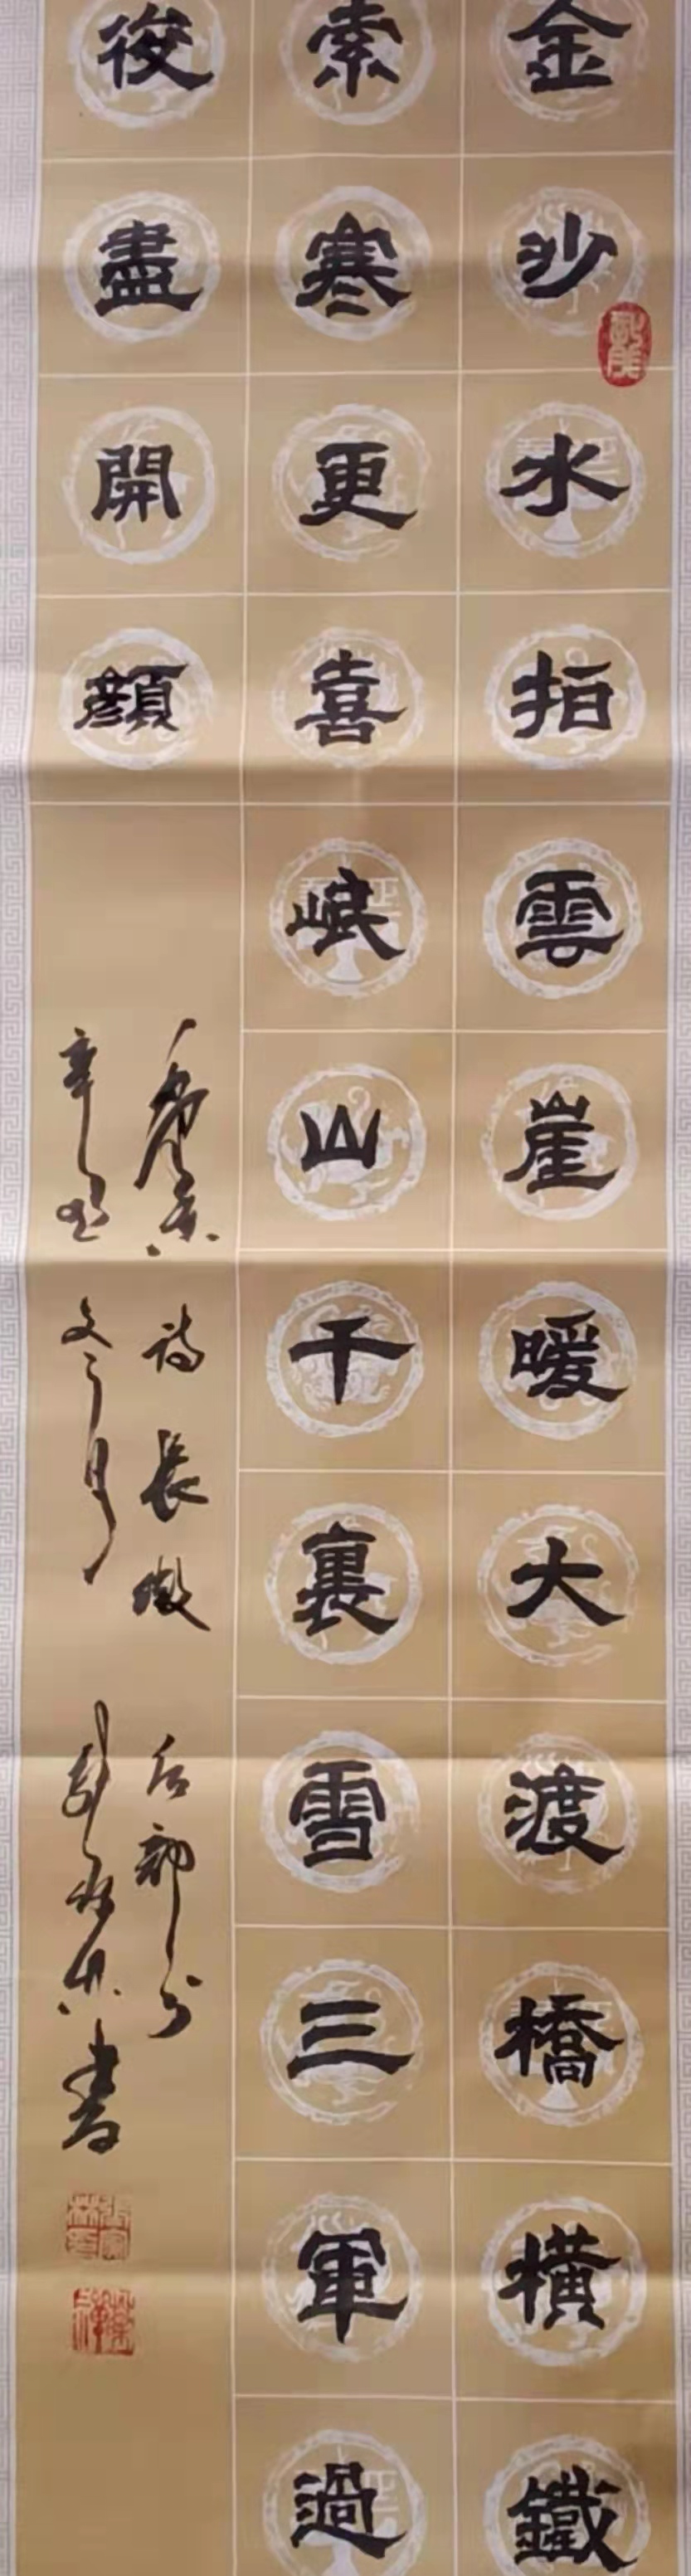 金沙水拍雲崖暖大渡橋橫鐵
索寒更喜岷山千裏雪三軍過
後盡開顏
詩長徵后部分
辛丑 月 書